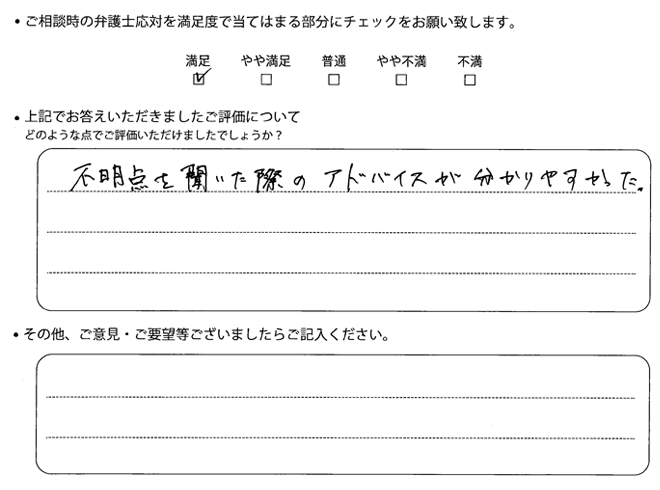 ・ご相談時の弁護士応対を満足度で当てはまる部分にチェックをお願い致します。
満足 やや満足 普通 やや不満 不満
☑ □ □ □ □
・上記でお答えいただきましたご評価について
どのような点でご評価いただけましたでしょうか？
不明点を聞いた際のアドバイスが分かりやすかった。
・その他、ご意見・ご要望等ございましたらご記入ください。